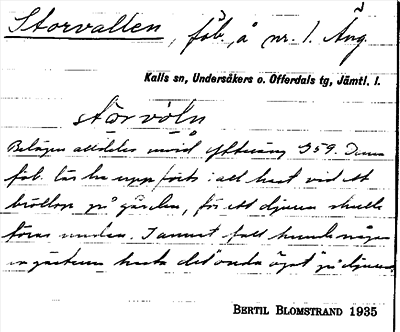 Storvallen, fäb. å nr. 1. Äng
Kalls sn, Undersåkers o. Offerdals tg, Jämtl. l.
störvöln
Belägen alldeles invid 359. Denna
fäb. lär ha uppförts i all hast vid ett
bröllop på gården, för att djuren skulle
föras undan. I annat fall kunde någon
av gästerna kasta det "onda ögat" på djuren.
BERTIL BLOMSTRAND 1935